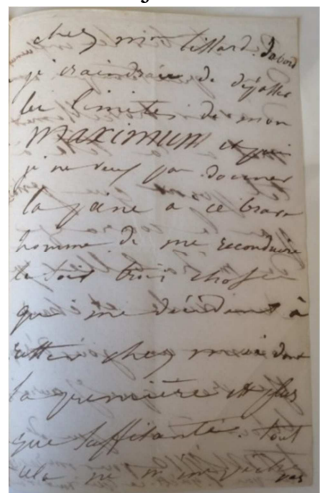 chez mr tissard. d'abord
je craindrais de dépasser
les limites de mon
maximum et puis
je ne veux pas donner
la peine a ce brave
homme de me reconduire
le soir trois choses
qui me décident à
rester chez moi dont
la première est plus
que suffisante. tout
cela ne m'empêche
pas